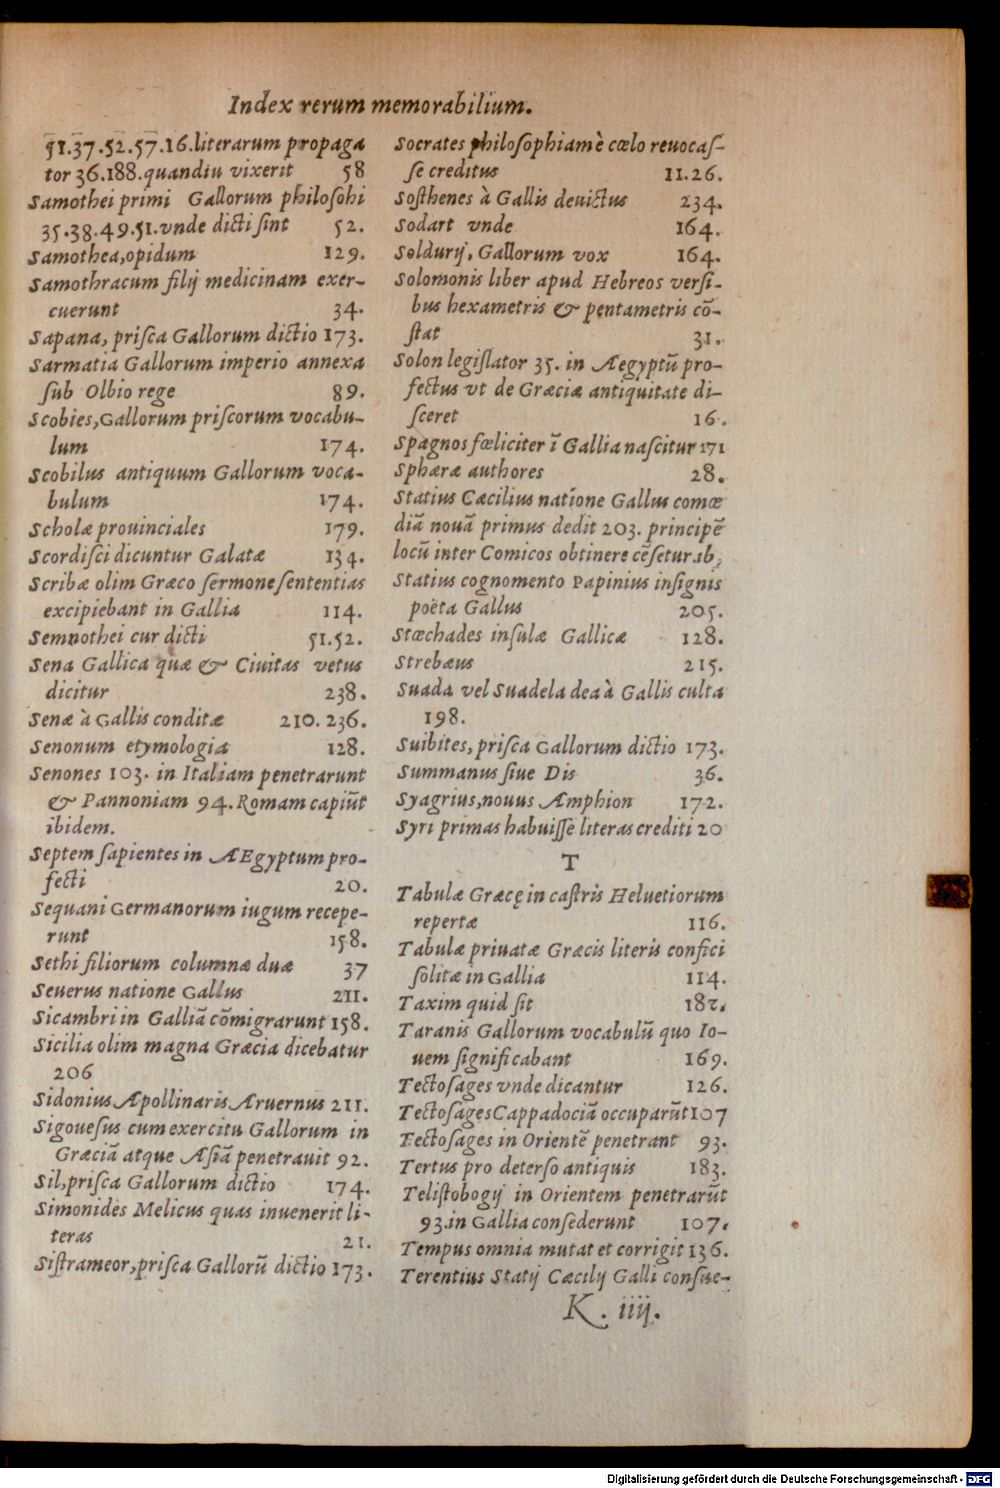 Index rerum memorabilium.
51.37.52.57.16.literarum propaga
tor 36.188.quandiu vixerit 58
Samothei primi Gallorum philosohi
35.38.49.51.vnde dicti sint 52.
Samothea,opidum 129.
Samothracum filij medicinam exer-
cuerunt 34.
Sapana, prisca Gallorum dictio 173.
Sarmatia Gallorum imperio annexa
sub Olbio rege 89.
Scobies,Gallorum priscorum vocabu-
lum 174.
Scobilus antiquum Gallorum voca-
bulum 174.
Scholæ prouinciales 179.
Scordisci dicuntur Galatæ 134.
Scribæ olim Græco sermone sententias
excipiebant in Gallia 114.
Semnothei cur dicti 51.52.
Sena Gallica quæ & Ciuitas vetus
dicitur 238.
Senæ à Gallis conditæ 210.236.
Senonum etymologia 128.
Senones 103. in Italiam penetrarunt
& Pannoniam 94.Romam capiūt
ibidem.
Septem sapientes in AEgyptum pro-
fecti 20.
Sequani Germanorum iugum recepe-
runt 158.
Sethi filiorum columnæ duæ 37
Seuerus natione Gallus 211.
Sicambri in Galliā cōmigrarunt 158.
Sicilia olim magna Græcia dicebatur
206
Sidonius Apollinaris Aruernus 211.
Sigouesus cum exercitu Gallorum in
Græciā atque Asiā penetrauit 92.
Sil,prisca Gallorum dictio 174.
Simonides Melicus quas inuenerit li-
teras 21.
Sistrameor,prisca Gallorū dictio 173.
Socrates philosophiam è cœlo reuocas-
se creditus 11.26.
Sosthenes à Gallis deuictus 234.
Sodart vnde 164.
Soldurij, Gallorum vox 164.
Solomonis liber apud Hebreos versi-
bus hexametris & pentametris cō-
stat 31.
Solon legislator 35. in Ægyptū pro-
fectus vt de Græciæ antiquitate di-
sceret 16.
Spagnos fœliciter ī Gallia nascitur 171
Sphæræ authores 28.
Statius Cæcilius natione Gallus comœ
diā nouā primus dedit 203. principē
locū inter Comicos obtinere cēsetur.ib,
Statius cognomento Papinius insignis
poëta Gallus 205.
Stœchades insulæ Gallicæ 128.
Strebæus 215.
Suada vel Suadela dea à Gallis culta
198.
Suibites, prisca Gallorum dictio 173.
Summanus siue Dis 36.
Syagrius,nouus Amphion 172.
Syri primas habuisse literas crediti 20
T
Tabulæ Græcę in castris Heluetiorum
repertæ 116.
Tabulæ priuatæ Græcis literis confici
solitæ in Gallia 114.
Taxim quid sit
Taranis Gallorum vocabulū quo Io-
uem significabant 169.
Tectosages vnde dicantur 126.
Tectosages Cappadociā occuparūt 107
Tectosages in Orientē penetrant 93.
Tertus pro deterso antiquis 183.
Telistobogij in Orientem penetrarūt
93.in Gallia consederunt 107.
Tempus omnia mutat et corrigit 136.
Terentius Statij Cæcilij Galli consue-
K. iiij.
Digitalisierung gefördert durch die Deutsche Forschungsgemeinschaft - DFG